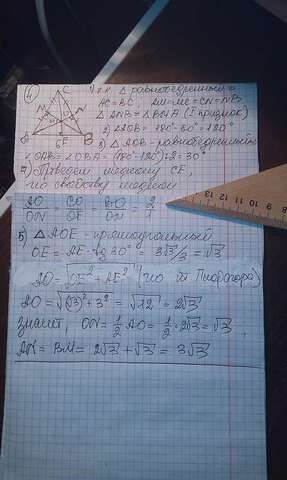 ④ 1) т.к. △ равнобедренный, то
AC=BC, AM=MC=CN=NB
△ANB=△BMA (I признак)
2) ∠AOB=180°-60°=120°
3) △AOB-равнобедренный
∠OAB=∠OBA=(180°-120°):2=30°
4) Проведем медиану CE,
по свойству медиан
AO/ON = CO/OE = BO/OM = 2/1
5) △AOE-прямоугольный
OE=AE·tg30°=3√3/3=√3
AO=√OE²+AE² (по т. Пифагора)
AO=√(√3)²+3²=√12=2√3
Значит, ON=1/2 AO=1/2·2√3=√3,
AN=BM=2√3+√3=3√3